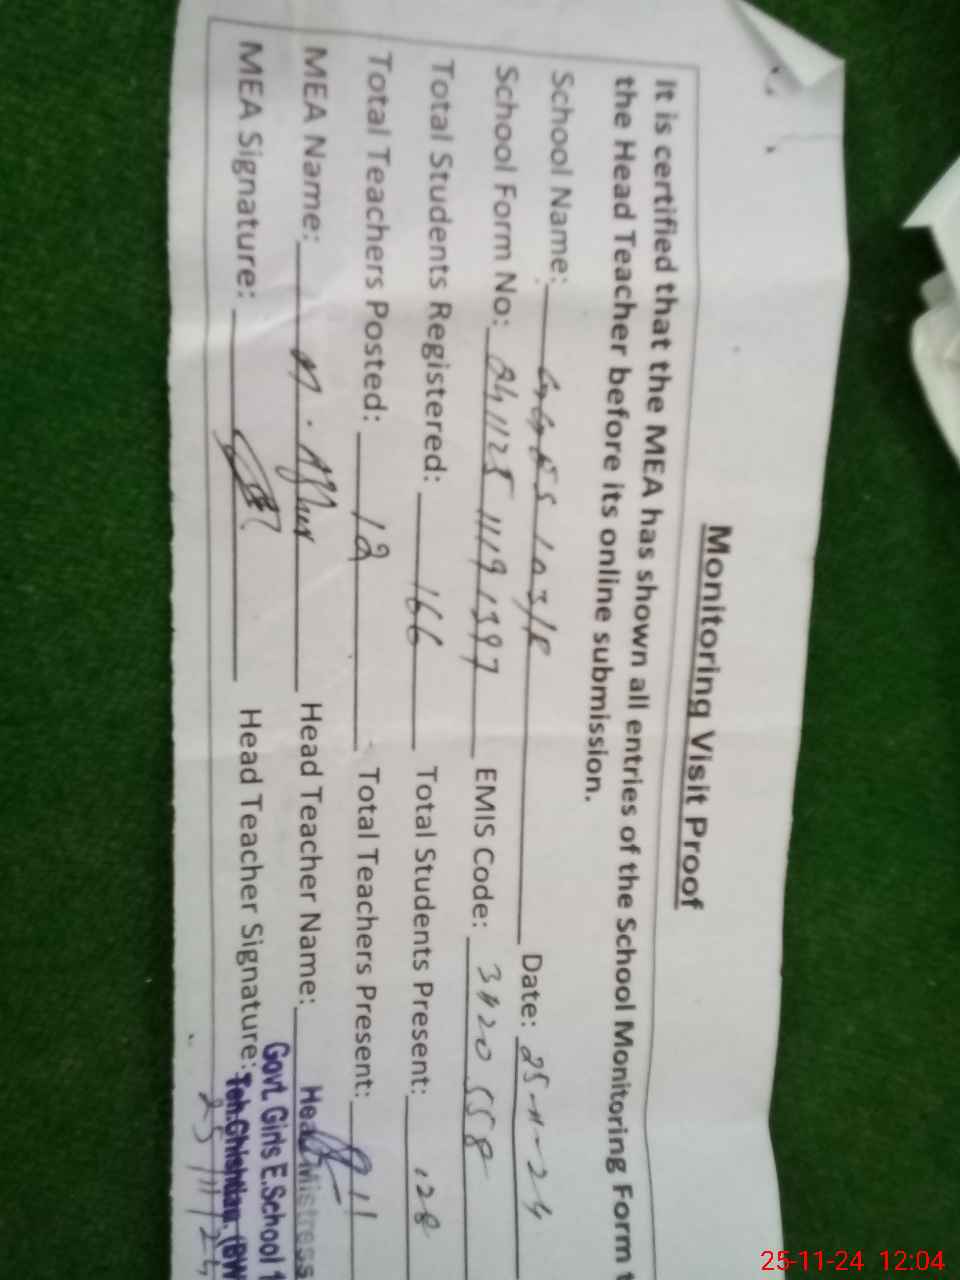 Monitoring Visit Proof
It is certified that the MEA has shown all entries of the School Monitoring Form t
the Head Teacher before its online submission.
School Name: GGES 103/F Date: 25-11-24
School Form No: 241125 1119 1397 EMIS Code: 31120558
Total Students Registered: 166 Total Students Present: 128
Total Teachers Posted: 12 Total Teachers Present: 11
MEA Name: M. Head Teacher Name: Head Mistress
MEA Signature: Head Teacher Signature: Govt. Girls E.School 1
Teh. Chishtian (BW
25/11/24
25-11-24 12:04